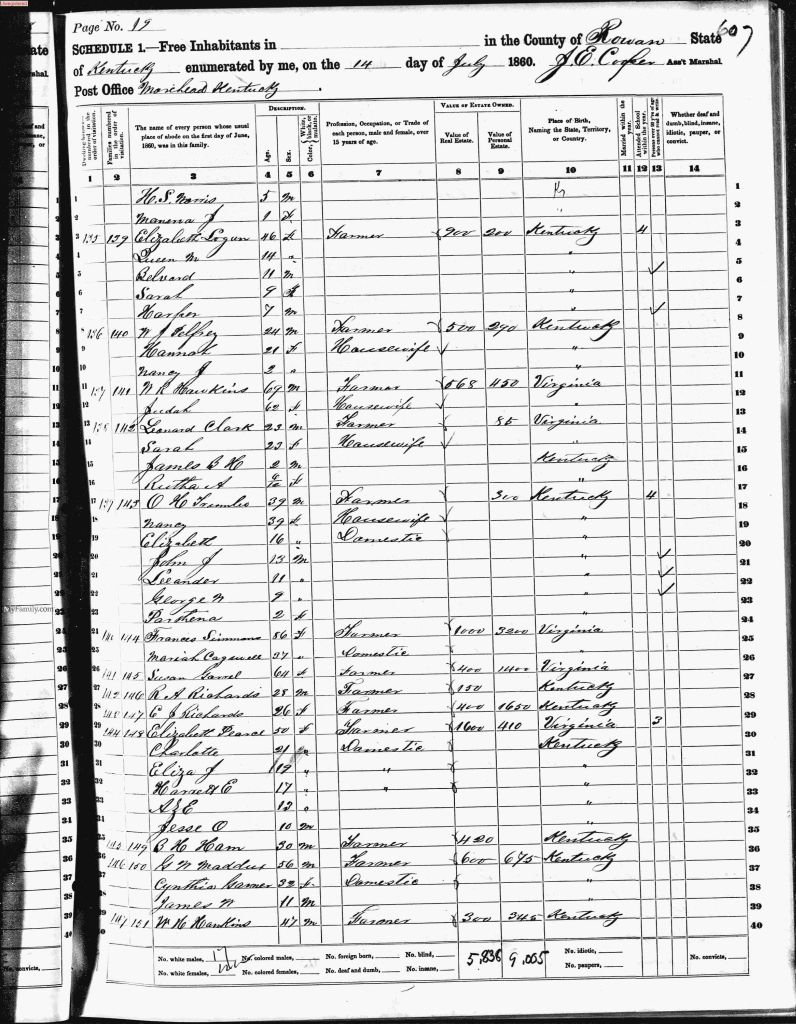 Page No. 19
607
SCHEDULE 1.—Free Inhabitants in in the County of Rowan State
of Kentucky enumerated by me, on the 14 day of July 1860. J. E. Cooper Ass't Marshal
Post Office Morehead Kentucky.
Dwelling-houses numbered in the order of visitation.
Families numbered in the order of visitation.
The name of every person whose usual place of abode on the first day of June, 1860, was in this family.
DESCRIPTION.
Age.
Sex.
Color, White, black, or mulatto.
Profession, Occupation, or Trade of each person, male and female, over 15 years of age.
VALUE OF ESTATE OWNED.
Value of Real Estate.
Value of Personal Estate.
Place of Birth, Naming the State, Territory, or Country.
Married within the year.
Attended School within the year.
Persons over 20 y'rs of age who cannot read & write.
Whether deaf and dumb, blind, insane, idiotic, pauper, or convict.
1 2 3 4 5 6 7 8 9 10 11 12 13 14
1 H. S. Norris 5 m Ky 1
2 J 1 f " 2
3 139 Elizabeth Logan 46 f Farmer 900 200 Kentucky 4 3
4 Queen M 14 " "
5 Belvard 11 m " ✓ 5
6 Sarah 9 f " 6
7 Harper 7 m " ✓ 7
8 136 140 W. J. Pelfrey 24 m Farmer 500 290 Kentucky 8
9 Hannah 21 f Housewife " 9
10 Nancy J 2 " " 10
11 137 141 W R Hawkins 69 m Farmer 568 450 Virginia 11
12 Judah 62 f Housewife " 12
13 138 142 Leonard Clark 23 m Farmer 85 Virginia 13
14 Sarah 23 f Housewife " 14
15 James B H 2 m Kentucky 15
16 Rutha A f " 16
17 139 143 O H Trumbo 39 m Farmer 300 Kentucky 4 17
18 Nancy 39 f Housewife " 18
19 Elizabeth 16 " Domestic " 19
20 John J 13 m " ✓ 20
21 Leeander 11 " " ✓ 21
22 George W 9 " " ✓ 22
23 Parthena 2 f " 23
24 140 144 Frances Simmons 56 f Farmer 1000 3200 Virginia 24
25 Mariah Cogswell 37 " Domestic " 25
26 141 145 Susan 64 f Farmer 400 1400 Virginia 26
27 142 146 R A Richards 28 m Farmer 150 Kentucky 27
28 143 147 E J Richards 26 f Farmer 400 1650 Kentucky 28
29 144 148 Elizabeth Pearce 50 f Farmer 1600 410 Virginia 3 29
30 Charlotte 21 Domestic Kentucky 30
31 Eliza J 19 " " "
32 Harriett E 17 " " " 32
33 A Z E 13 " " 33
34 Jesse O 10 m " 34
35 145 149 B H Ham 30 m Farmer 420 Kentucky 35
36 146 150 G W Maddux 56 m Farmer 600 675 Kentucky 36
37 Cynthia 32 f Domestic " 37
38 James W 11 m " 38
39 147 151 W H Hankins 47 m Farmer 300 345 Kentucky 39
40 40
No. white males, 17 No. colored males, No. foreign born, No. blind, 5,836 9,005 No. idiotic,
No. white females, No. colored females, No. deaf and dumb, No. insane, No. paupers, No. convicts,
MyFamily.com